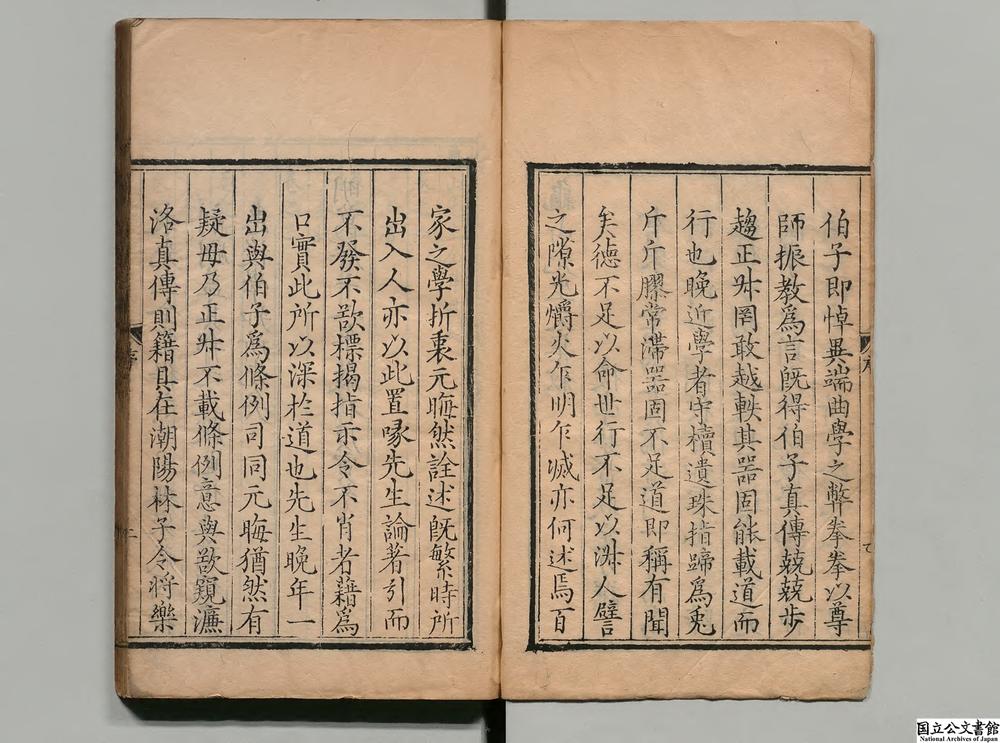 伯子即悼異端曲學之弊拳拳以尊
師振教為言旣得伯子真傳兢兢步
趨正叔罔敢越軼其器固能載道而
行也晚近學者守櫝遺珠指蹄為兎
斤斤膠常滯器固不足道即稱有聞
矣德不足以命世行不足以淑人譬
之隙光爝火乍明乍滅亦何述焉百
序
家之學折衷元晦然詮述旣繁時所
出入人亦以此置喙先生論著引而
不發不欲標揭指示令不肖者藉為
口實此所以深於道也先生晚年一
出與伯子為條例司同元晦猶然有
疑毋乃正叔不載條例意與欲窺濂
洛真傳則籍具在潮陽林子令將樂
序
二
国立公文書館
National Archives of Japan